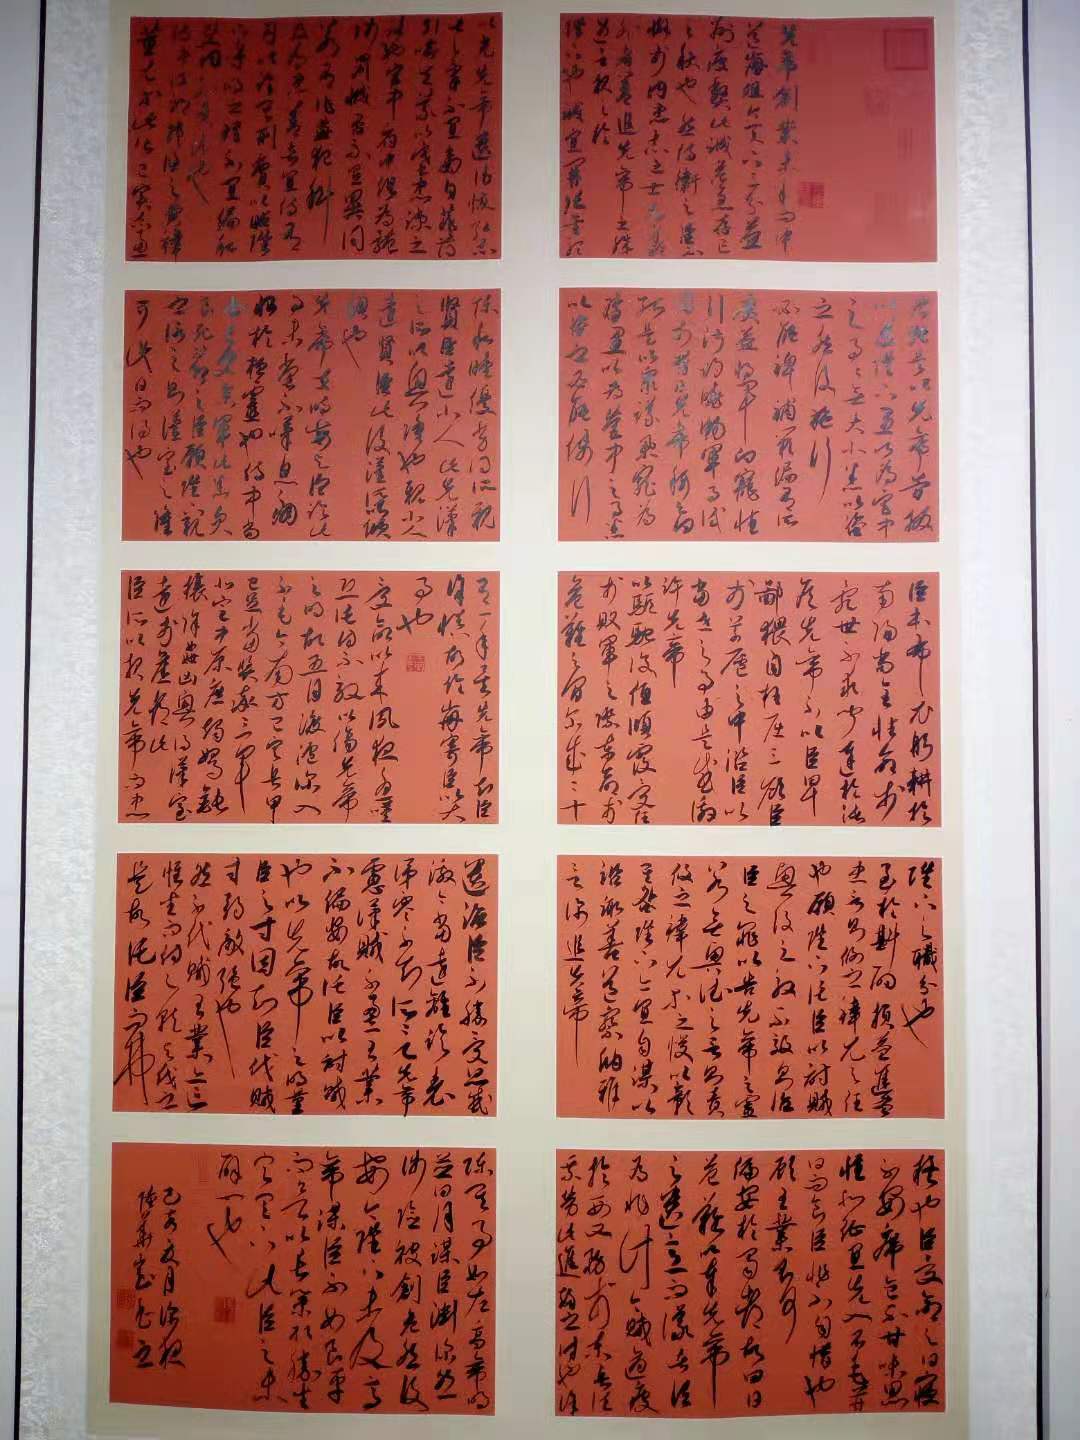 先帝創業未半而中
道崩殂今天下三分益
州疲敝此誠危急存亡
之秋也然侍衛之臣不
懈於内忠志之士忘身
於外者蓋追先帝之殊
遇欲報之於
陛下也誠宜開張聖聽
以光先帝遺德恢弘志
士之氣不宜妄自菲薄
引喻失義以塞忠諫之
路也宫中府中俱為一體
陟罰臧否不宜異同
若有作姦犯科
及為忠善者宜付有
司論其刑賞以昭陛下
平明之理不宜偏私
使内外異法也
侍中侍郎郭攸之費禕
董允等此皆良實志慮
忠純是以先帝簡拔
以遺陛下愚以為宫中
之事事無大小悉以咨
之然後施行
必能裨補闕漏有所
廣益將軍向寵性
行淑均曉暢軍事試
用於昔日先帝稱之曰能
是以衆議舉寵為
督愚以為營中之事悉
以咨之必能使行
陣和睦優劣得所親
賢臣遠小人此先漢
之所以興隆也親小人
遠賢臣此後漢所以傾
頹也
先帝在時每與臣論此
事未嘗不嘆息痛
恨於桓靈也侍中尚
書長史參軍此悉貞
良死節之臣願陛下親
之信之則漢室之隆
可計日而待也
臣本布衣躬耕於
南陽苟全性命於
亂世不求聞達於諸
侯先帝不以臣卑
鄙猥自枉屈三顧臣
於草廬之中諮臣以
當世之事由是感激
許先帝
以驅馳後值傾覆受任
於敗軍之際奉命於
危難之間爾來二十
有一年矣先帝知臣
謹慎故臨崩寄臣以大
事也
受命以來夙夜憂嘆
恐託付不效以傷先帝
之明故五月渡瀘深入
不毛今南方已定兵甲
已足當獎率三軍
北定中原庶竭駑鈍
攘除姦凶興復漢室
還於舊都此
臣所以報先帝而忠
陛下之職分也
至於斟酌損益進盡
忠言則攸之禕允之任
也願陛下託臣以討賊
興復之效不效則治
臣之罪以告先帝之靈
若無興德之言則責
攸之禕允等之慢以彰
其咎陛下亦宜自謀以
諮諏善道察納雅
言深追先帝
遺詔臣不勝受恩感
激今當遠離臨表
涕零不知所云先帝
慮漢賊不兩立王業
不偏安故託臣以討賊
也以先帝之明量
臣之才固知臣伐賊
才弱敵强也
然不伐賊王業亦亡
惟坐而待亡孰與伐之
是故託臣而弗
疑也臣受命之日寢
不安席食不甘味思
惟北征宜先入不毛并
日而食臣非不自惜也
顧王業不可
偏安於蜀都故冒
危難以奉先帝
之遺意而議者謂
為非計今賊適疲
於西又務於東兵法
乘勞此進趨之時也謹
陳其事如左高帝明
並日月謀臣淵深然
涉險被創危然後
安今陛下未及高
帝謀臣不如良平
而欲以長策取勝坐
定天下此臣之未
解一也
己亥夏月